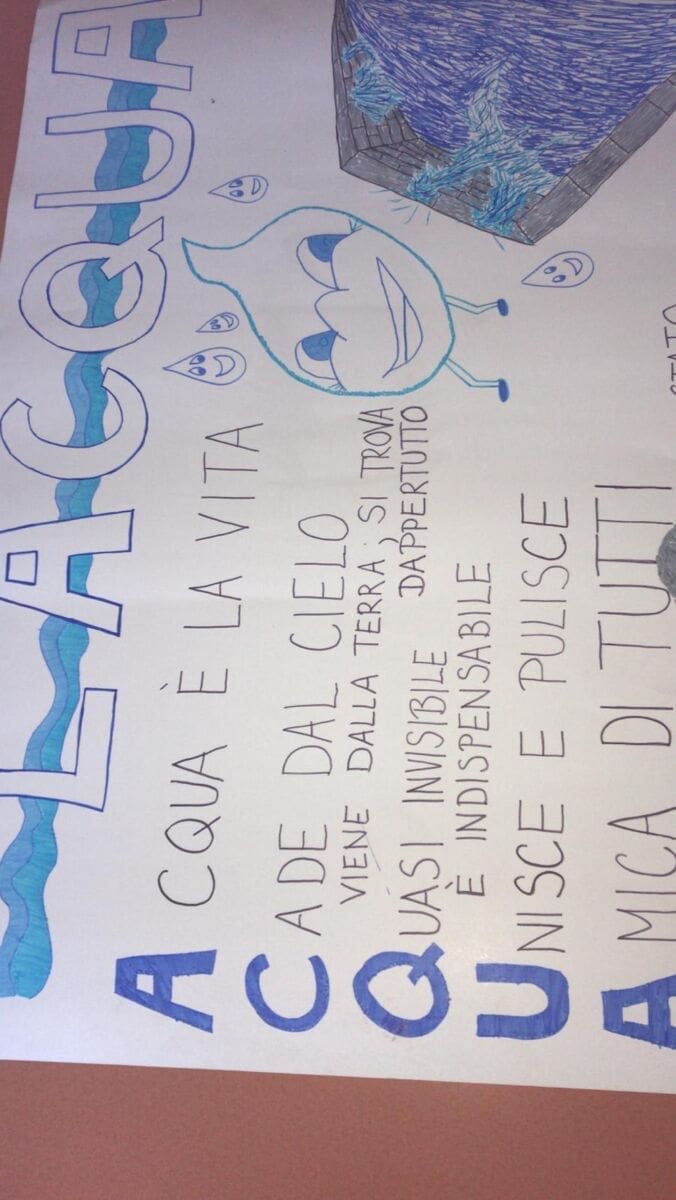 LACQUA
ACQUA È LA VITA
CADE DAL CIELO
VIENE DALLA TERRA; SI TROVA
DAPPERTUTTO
QUASI INVISIBILE
È INDISPENSABILE
UNISCE E PULISCE
AMICA DI TUTTI